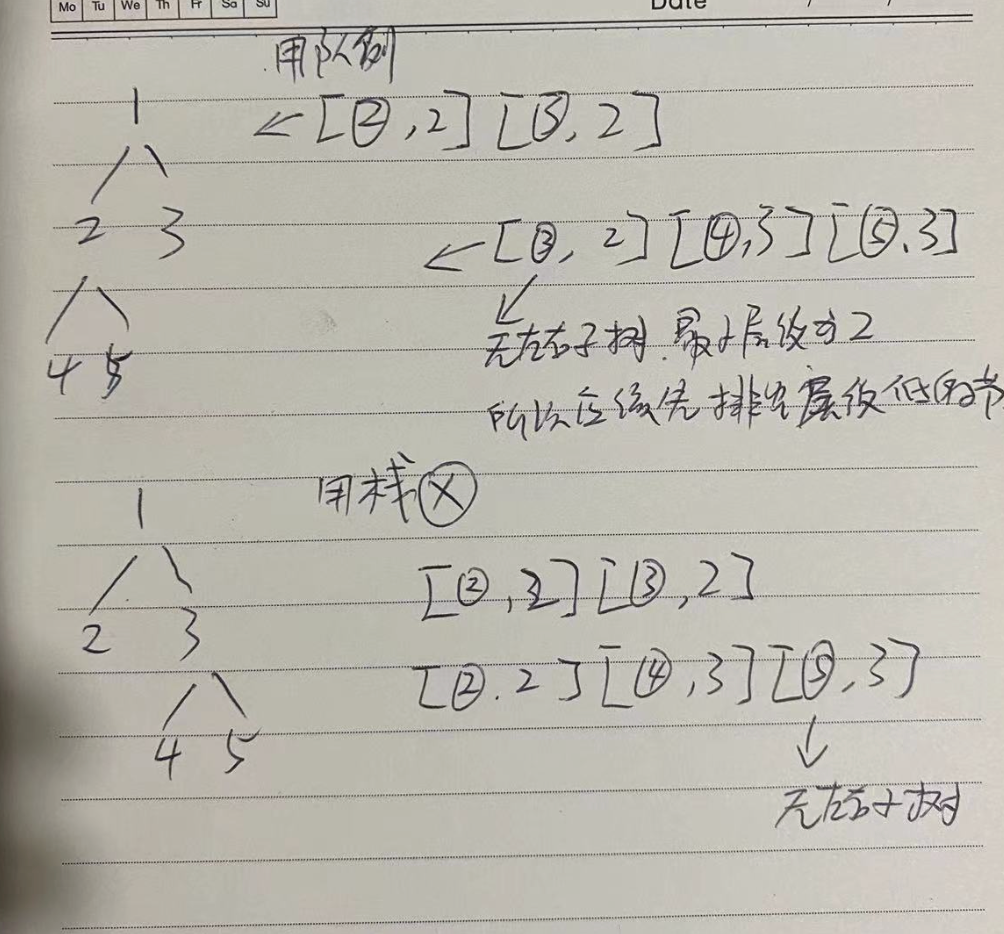 Mo Tu We Th Fr Sa Su
Date / /
用队列
1
← [②,2] [③,2]
2 3
← [③,2] [④,3] [⑤,3]
↙
无左右子树.最小层级为2
4 5
所以应该先排出层级低的节
用栈 ⓧ
1
[②,2] [③,2]
2 3
[②.2] [④,3] [⑤,3]
4 5
↓
无左右子树